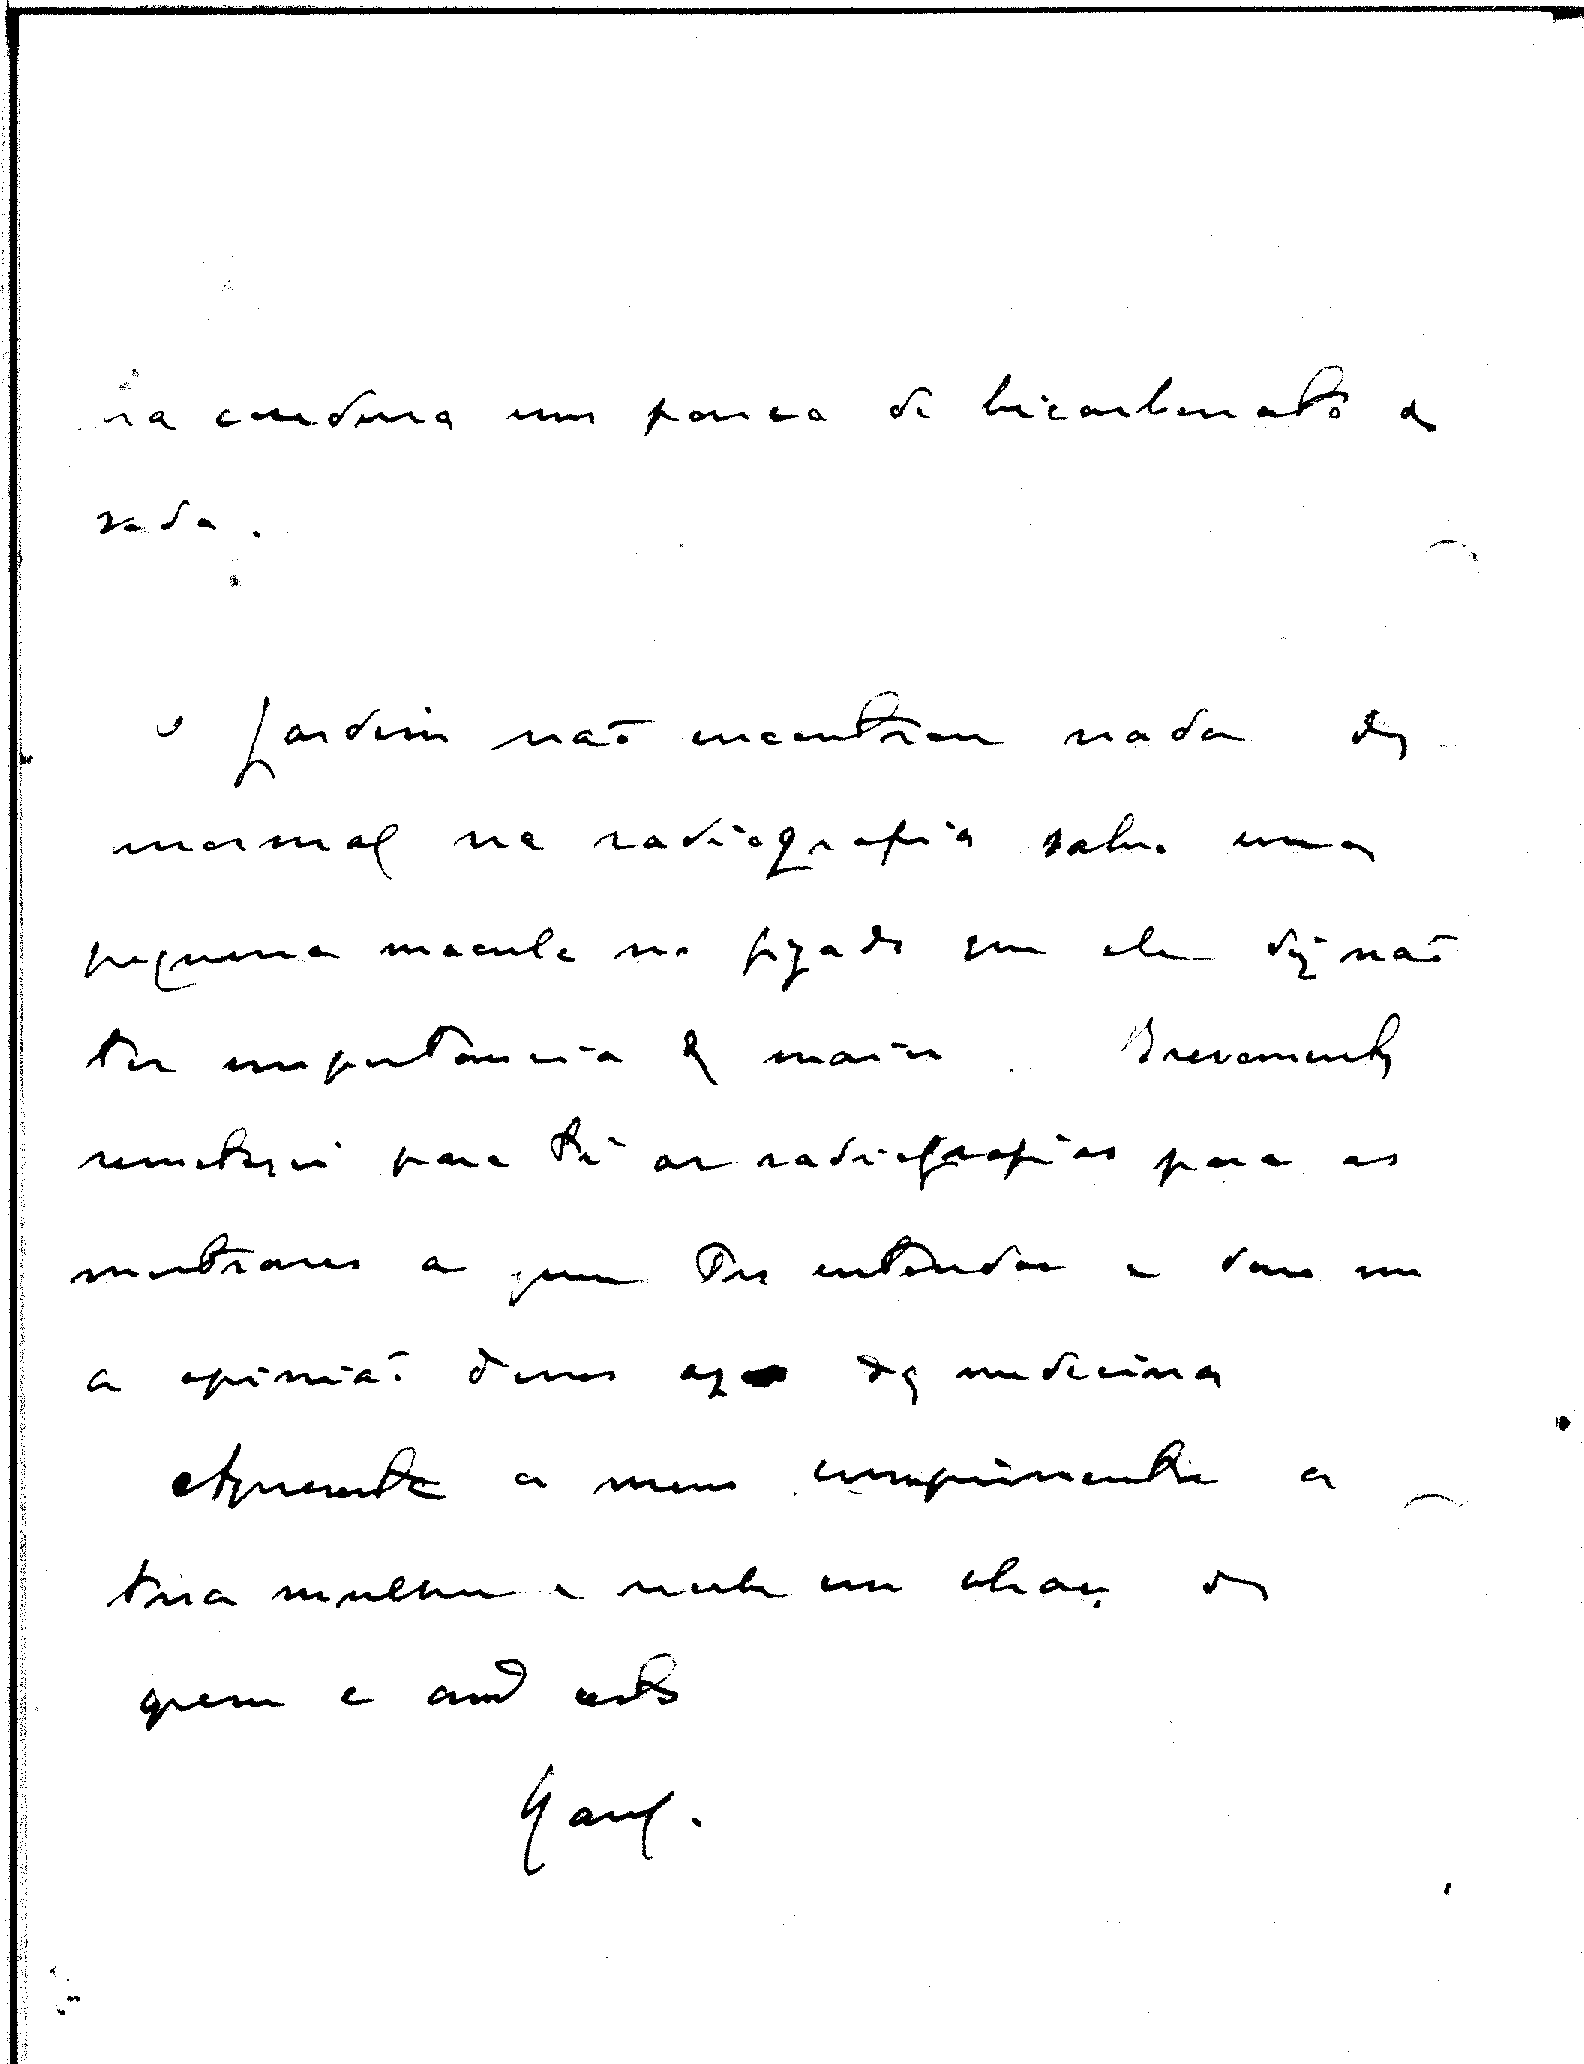 na cosedura um pouco de bicarbonato de
soda.
O Jardim não encontrou nada de
normal na radiografia salvo uma
pequena macula no figado que ele diz não
ter importancia de maior. Brevemente
remeterei para ti as radiografias para as
mostrares a quem tu entendas e dares me
a opinião desses da medicina
Apresenta os meus cumprimentos a
tua mulher e recebe um abraço de
quem é amº certo